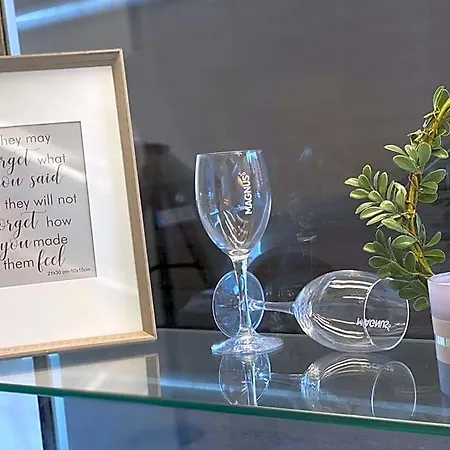 They may
forgot what
you said
they will not
forget how
you made
them feel
21x30 cm-10x15cm
MAGNUS
MAGNUS